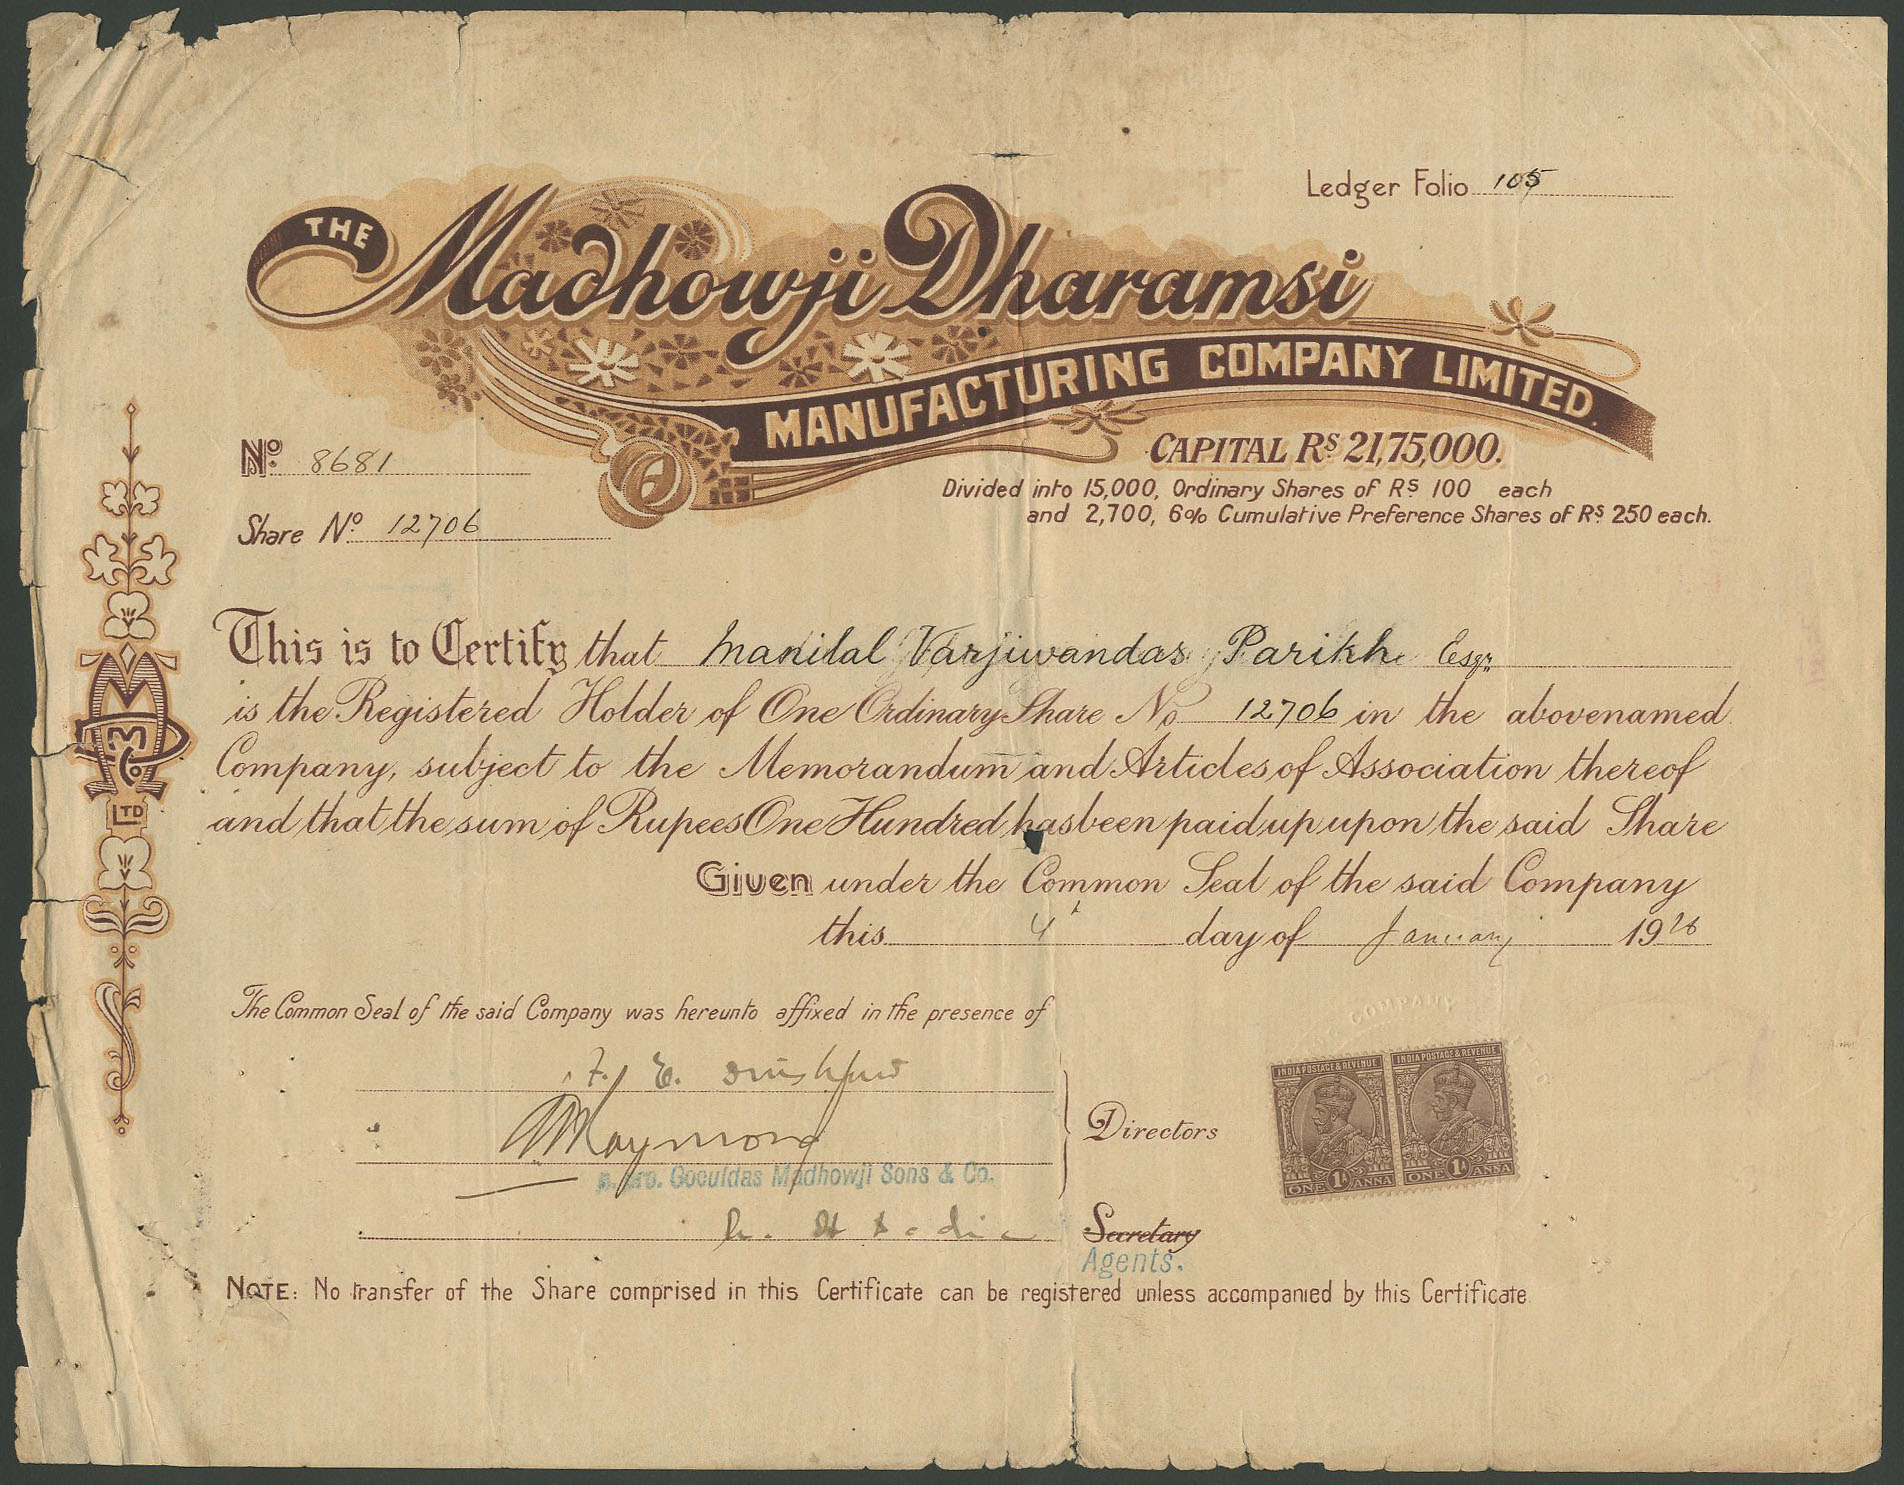 Ledger Folio 105
THE
Madhowji Dharamsi
MANUFACTURING COMPANY LIMITED.
CAPITAL Rs 21,75,000.
Divided into 15,000, Ordinary Shares of Rs 100 each
and 2,700, 6% Cumulative Preference Shares of Rs 250 each.
No. 8681
Share No. 12706
This is to Certify that Manilal Varjiwandas Parikh Esqr.
is the Registered Holder of One Ordinary Share No 12706 in the abovenamed
Company, subject to the Memorandum and Articles of Association thereof
and that the sum of Rupees One Hundred has been paid up upon the said Share
Given under the Common Seal of the said Company
this 4 day of January 19
The Common Seal of the said Company was hereunto affixed in the presence of
F. E.
Directors
Goculdas Madhowji Sons & Co.
Secretary
Agents.
NOTE: No transfer of the Share comprised in this Certificate can be registered unless accompanied by this Certificate
LTD
COMPANY
INDIA POSTAGE & REVENUE
ONE 1A ANNA
INDIA POSTAGE & REVENUE
ONE 1A ANNA